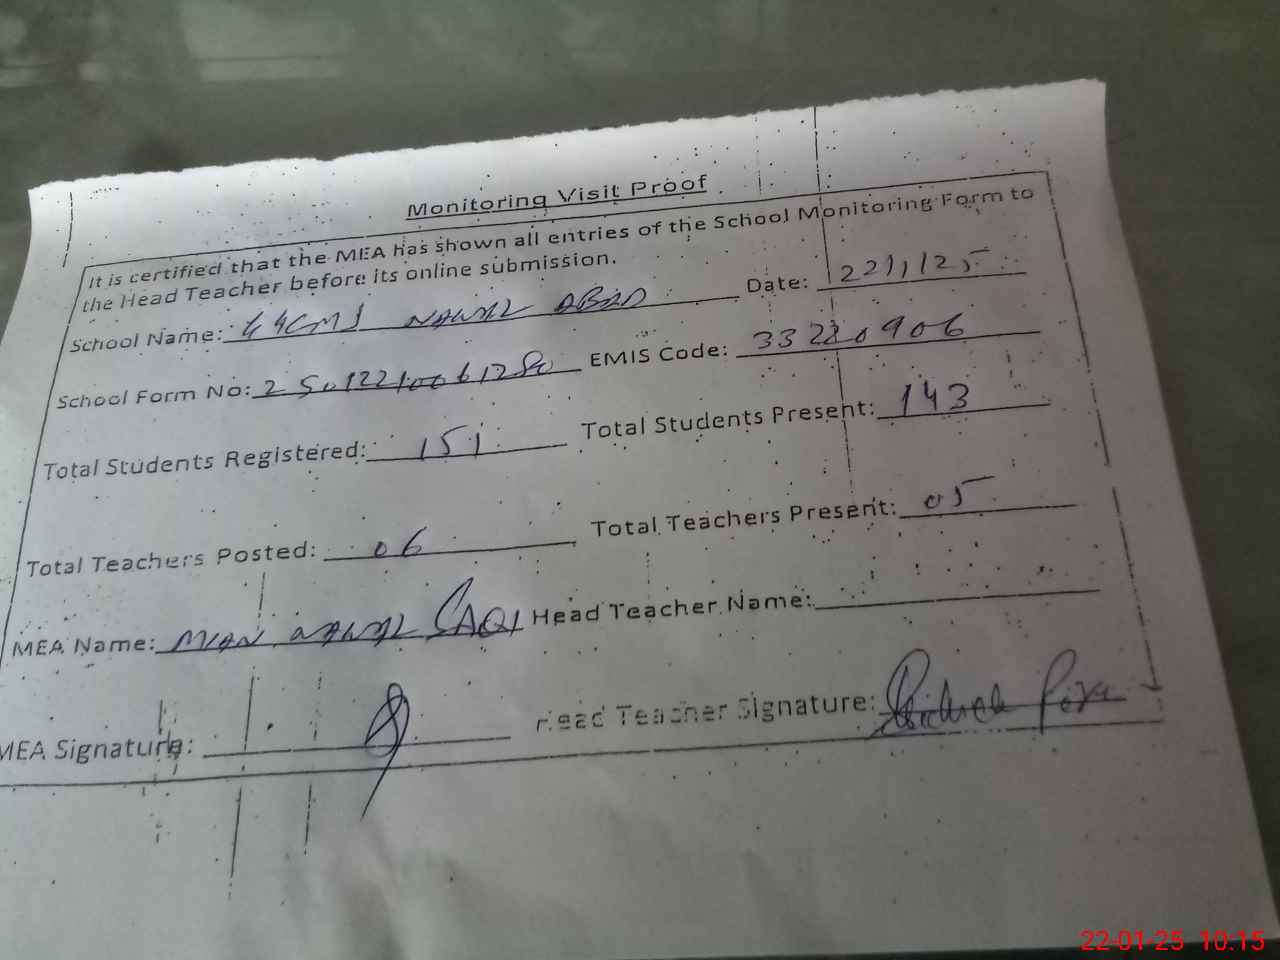 Monitoring Visit Proof
It is certified that the MEA has shown all entries of the School Monitoring Form to
the Head Teacher before its online submission.
School Name: NAWAZ ABAD Date: 22/1/25
School Form No: EMIS Code: 33220906
Total Students Registered: 151 Total Students Present: 143
Total Teachers Posted: 06 Total Teachers Present: 05
MEA Name: MIAN NAWAZ SAQI Head Teacher Name:
MEA Signature: Head Teacher Signature:
22-01-25 10:15